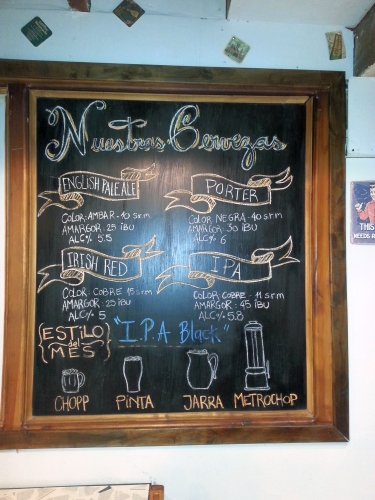 Nuestras Cervezas
ENGLISH PALE ALE
COLOR: AMBAR - 10 s.r.m
AMARGOR: 25 IBU
ALC% 5.5
PORTER
COLOR NEGRA - 40 s.r.m
AMARGOR: 30 IBU
ALC% 6
IRISH RED
COLOR: COBRE 15 s.r.m
AMARGOR: 25 IBU
ALC% 5
IPA
COLOR COBRE - 11 s.r.m
AMARGOR: 45 IBU
ALC% 5.8
ESTILO
del
MES
"I.P.A Black"
CHOPP PINTA JARRA METROCHOP
THIS
NEEDS A